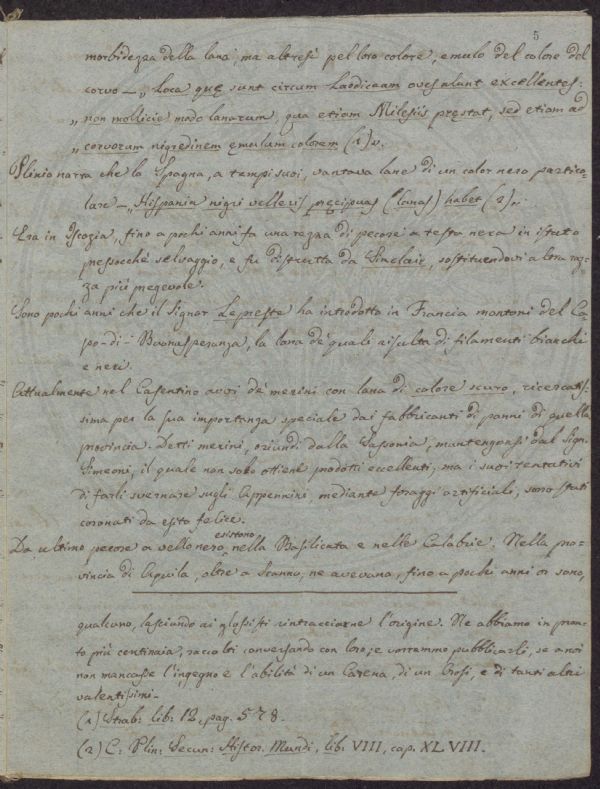 5
morbidezza della lana, ma altresì pel loro colore, emulo del colore del
corvo — „ Loca quę sunt circum Laodicaam oves alunt excellentes:
„ non mollicie modo lanarum, qua etiam Milesiis pręstat, sed etiam ad
„ corvorum nigredinem ęmulum colorem (1)„.
Plinio narra che la Spagna, a tempi suoi, vantava lane di un color nero partico-
lare — „Hispania nigri velleris pręcipuas (lanas) habet (2)„.
Era in Iscozia, fino a pochi anni fa una razza di pecore a testa nera in istato
pressocchè selvaggio, e fu distrutta da Sinclair, sostituendovi altra raz-
za più pregevole.
Sono pochi anni che il Signor Lepreste ha introdotto in Francia montoni del Ca-
po-di-Buonasperanza, la lana de' quali risulta di filamenti bianchi
e neri.
Attualmente nel Casentino avvi de' merini con lana di colore scuro, ricercatis-
sima per la sua importanza speciale dai fabbricanti di panni di quella
provincia. Detti merini, oriundi dalla Sassonia, mantengonsi dal Sign.
Simeoni, il quale non solo ottiene prodotti eccellenti, ma i suoi tentativi
di farli svernare sugli Appennini, mediante foraggi artificiali, sono stati
coronati da esito felice.
Da ultimo pecore a vello nero esistono nella Basilicata e nelle Calabrie. Nella pro-
vincia di Aquila, oltre a Scanno, ne avevano, fino a pochi anni or sono,
qualcuno, lasciando ai glossisti rintracciarne l'origine. Ne abbiamo in pron-
to più centinaia, raccolti conversando con loro, e vorremmo pubblicarli, se a noi
non mancasse l'ingegno e l'abilità di un Carena, di un Grosi, e di tanti altri
valentissimi.
(1) Strab: lib: 12, pag. 578.
(2) C: Plin: Secun: Histor. Mundi, lib: VIII, cap. XLVIII.